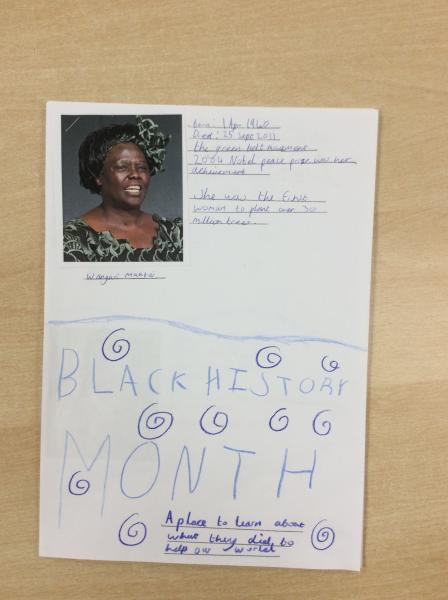 Born: 1 Apr 1940
Died: 25 Sept 2011
the green belt movement
2004 Nobel peace prize was her
achievement
She was the first
woman to plant over 30
million trees.
Wangari Maathai
BLACK HISTORY
MONTH
A place to learn about
what they did to
help our world